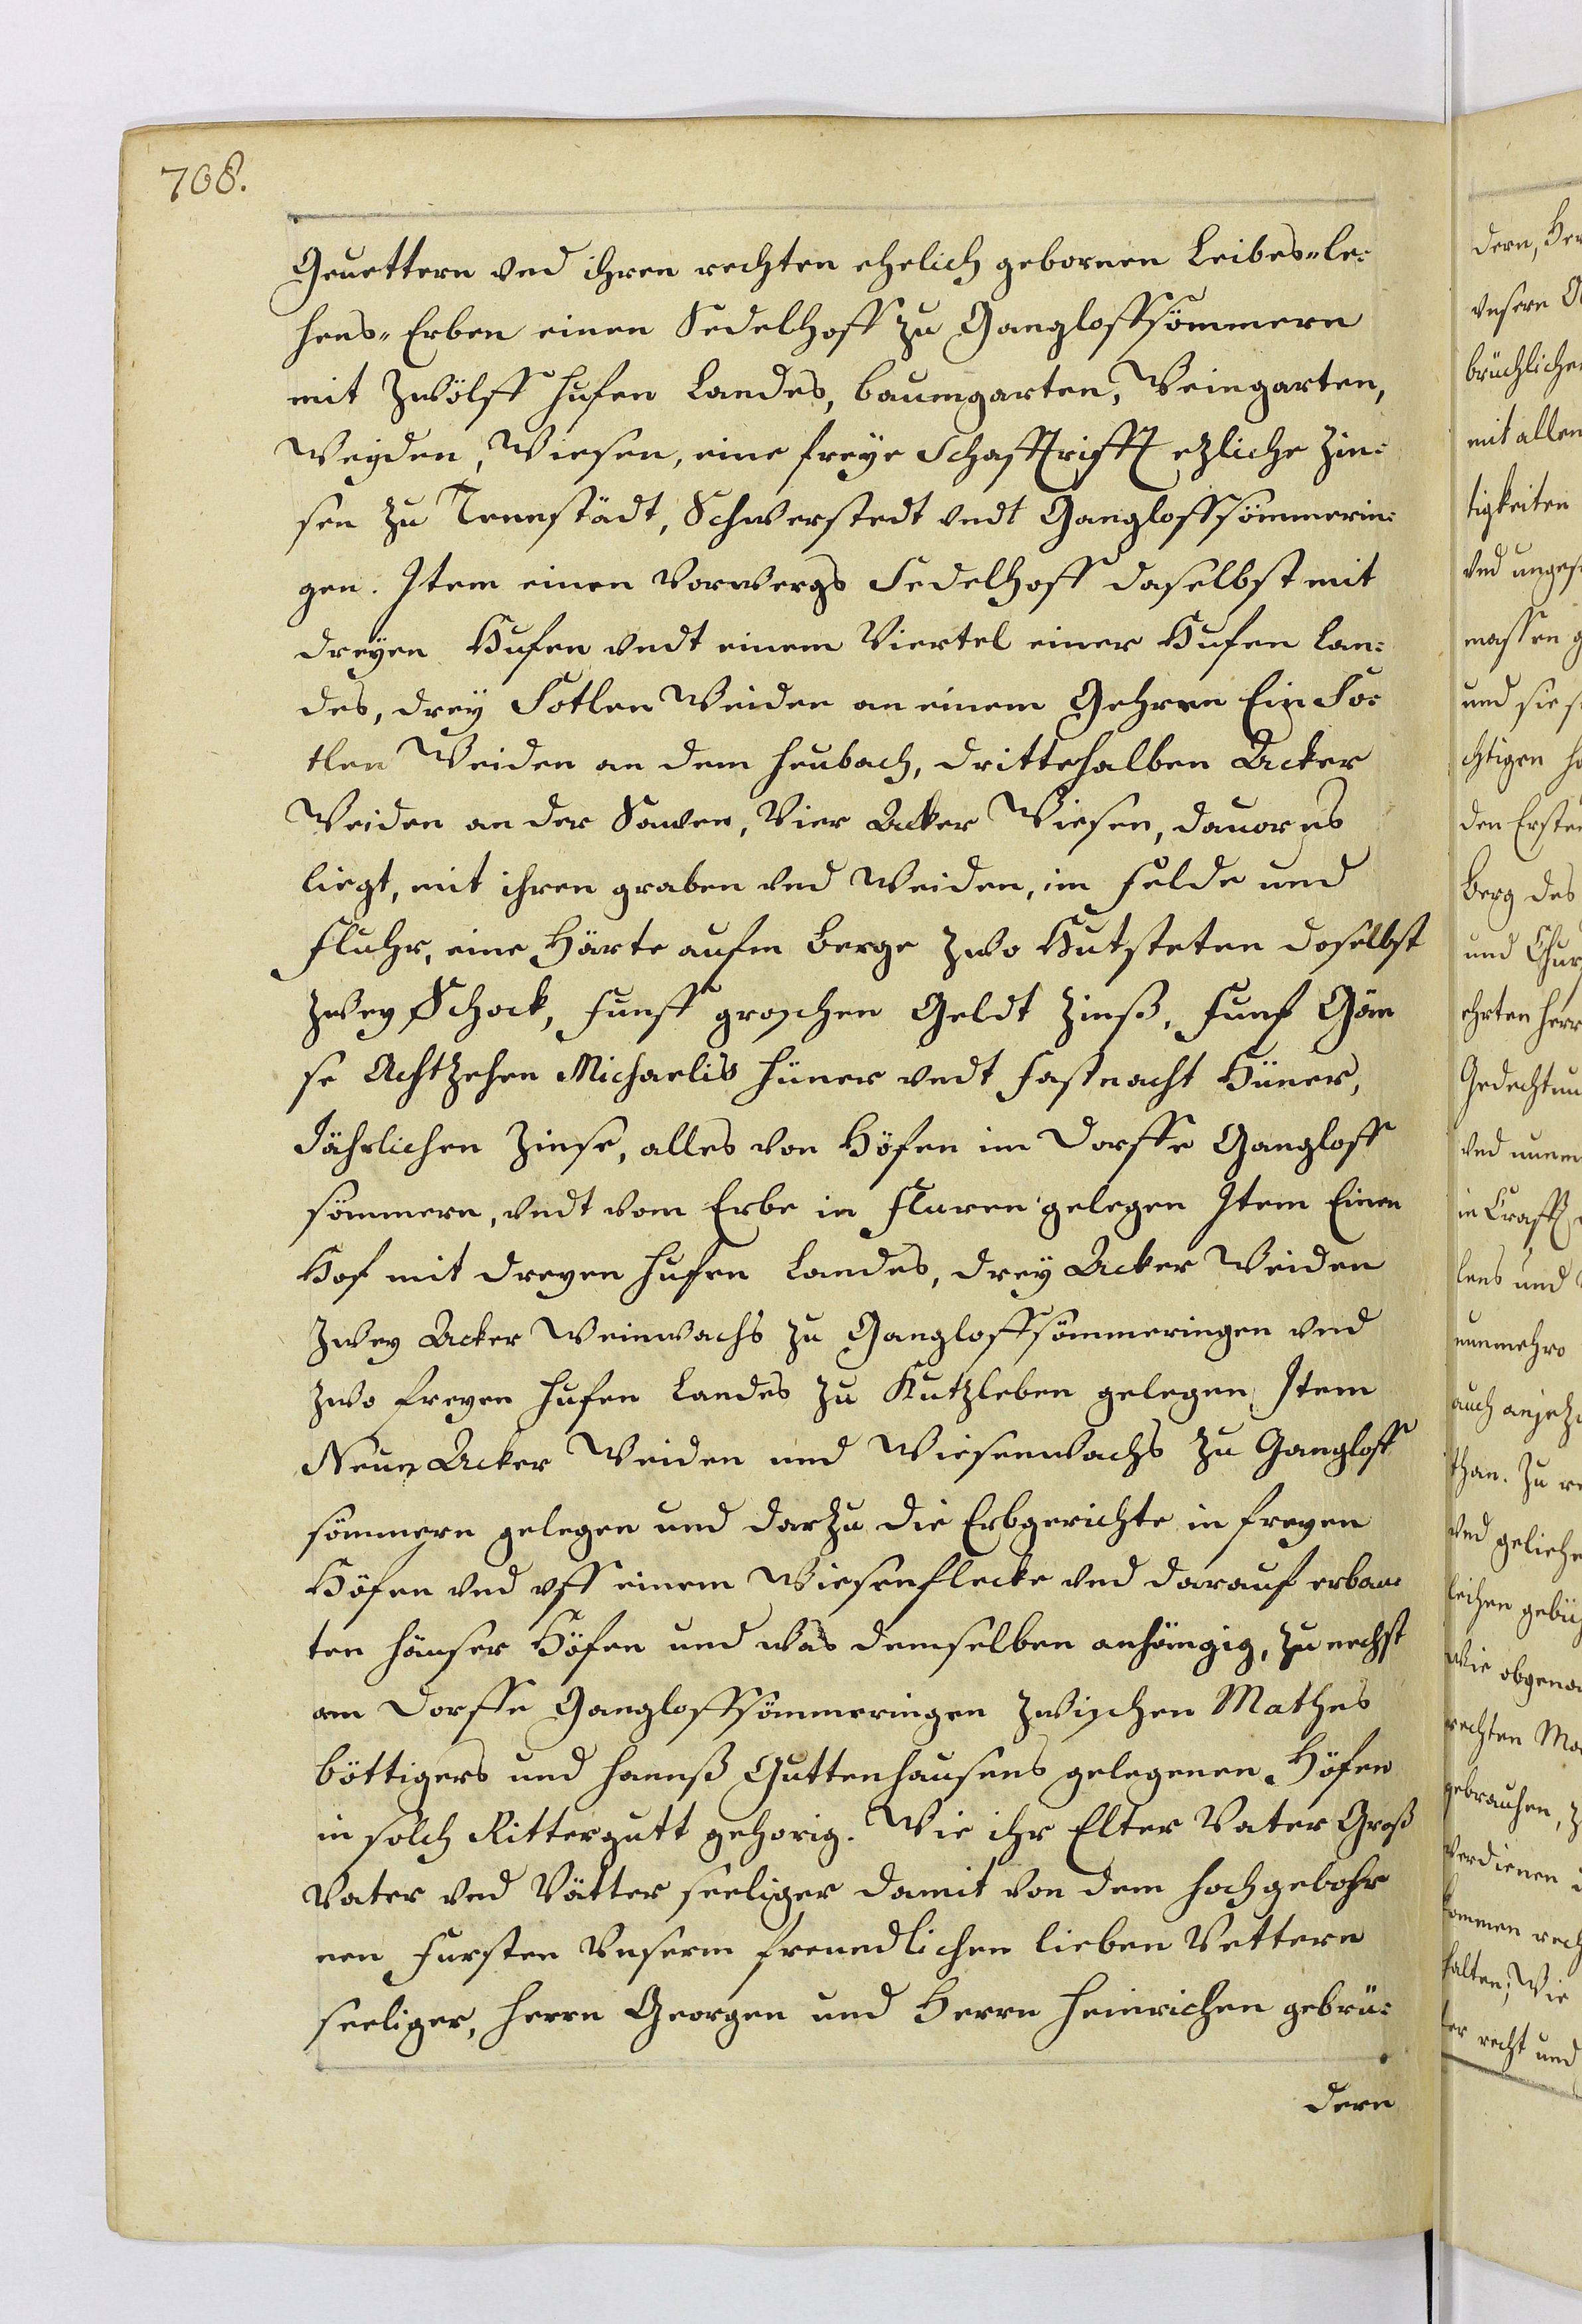 708.
Geuettern vnd ihren rechten ehelich gebornen Leibes-le:
hens-Erben einen Sedelhoff zu Gangloffsömmern
mit Zwölff hufen Landes, baumgarten, Weingarten,
Weyden, Wiesen, eine freye Schafftrifft etzliche Zin:
sen zu Tennstädt, Schwerstedt vndt Gangloffsömmerin:
gen. Item einen Vorwergs Sedelhoff daselbst mit
dreyen Hufen vndt einem Viertel einer Hufen Lan:
des, drey Sotlen Weiden an einem Gehren Ein So:
tlen Weiden an dem heubach, drittehalben Acker
Weiden an der Sawen, Vier Acker Wiesen, dauor es
liegt, mit ihren graben vnd Weiden, im felde und
fluhr, eine Härte aufm berge zwo Hutsteten doselbst
zwey Schock, funff groschen Geldt Zinß, funf Gän
se Achtzehen Michaelis hüner vndt fastnacht Hüner,
Jährlichen Zinse, alles von Höfen im Dorffe Gangloff
sömmern, vndt vom Erbe in fluren gelegen Item Einen
Hof mit dreyen hufen Landes, drey Acker Weiden
zwey Acker Weinwachs zu Gangloffsömmeringen vnd
zwo freyen hufen Landes zu Kutzleben gelegen, Item
Neun Acker Weiden und Wiesenwachs zu Gangloff
sömmern gelegen und darzu die Erbgerichte in freyen
Höfen vnd vff einem Wiesenflecke vnd darauf erbau:
ten häuser Höfen und was demselben anhängig, zu nechst
am Dorffe Gangloffsömmeringen zwischen Mathes
böttigers und hannß Guttenhausens gelegenen Höfen
in solch Rittergutt gehorig. Wie ihr Elter Vater Groß
Vater vnd Vätter seeliger damit von dem hochgebohr
nen fursten Vnserm freundlichen lieben Vettern
seeliger, herrn Georgen und Herrn heinrichen gebrü:
dern
dern, He
vnsern
brüchliche
mit allen
tigkeiten
vnd
massen
und sie
chtigen
den Ersten
berg des
und Chur
ehrten herr
Gedechtnu
vnd
in Crafft
lens und
nunmehro
auch anjetz
than. Zu
vnd geliehe
leihen gebü
Wie obgena
rechten Ma
gebrauchen,
verdienen
kommen rech
halten, Wie
ter recht und